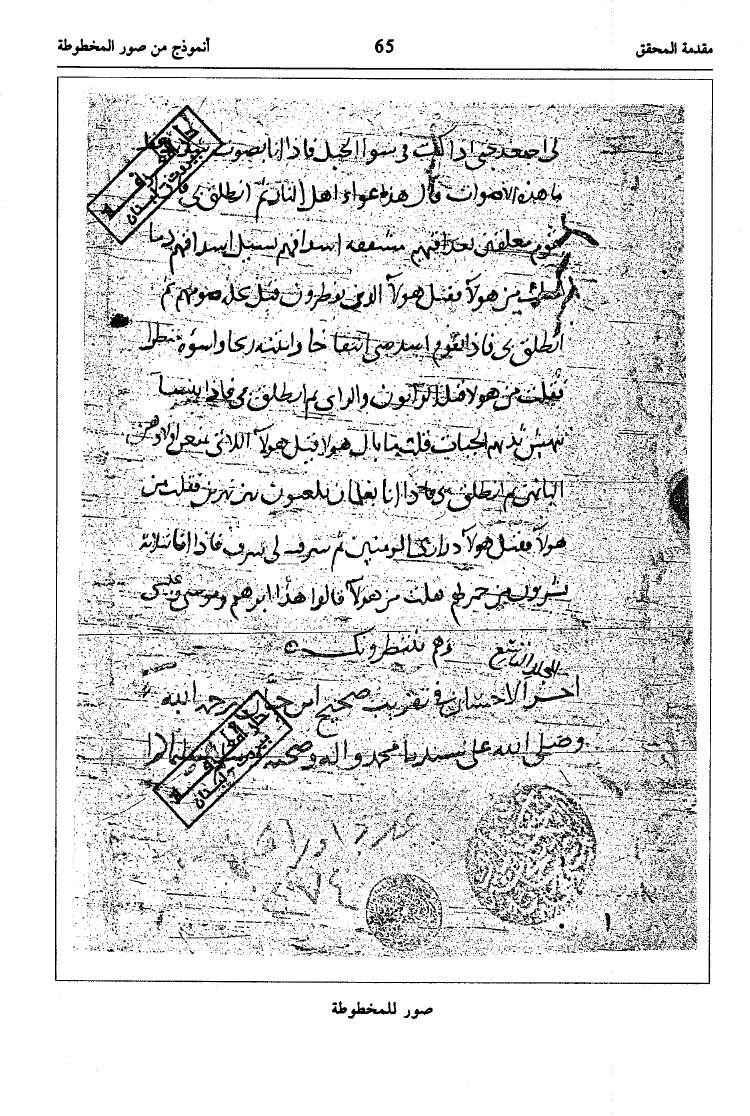 مقدمة المحقق
65
أنموذج من صور المخطوطة
لي اصعد حتى اذا كنت في سوا الجبل فاذا انا بصوت
ما هذه الاصوات قال هذا عواء اهل النار ثم انطلق بي فاذا
بقوم معلقين بعراقيبهم مشققه اشداقهم تسيل اشداقهم دما
فقلت من هولاء فقيل هولاء الذين يفطرون قبل تحله صومهم ثم
انطلق بي فاذا بقوم اشد شي انتفاخا وانتنه ريحا واسوه منظرا
فقلت من هولا قيل الزانون والزواني ثم انطلق بي فاذا بنسا
تنهش ثديهن الحيات قلت ما بال هولا قيل هولاء اللاتي يمنعن اولادهن
البانهن ثم انطلق بي فاذا انا بغلمان يلعبون بين نهرين فقلت من
هولاء فقيل هولاء ذراري المومنين ثم شرف لي شرف فاذا انا بثلاثة
يشربون من خمر لهم قلت من هولاء قالوا هذا ابرهيم وموسى وعيسى
وهم ينتظرونك
اخر الاحسان في تقريب صحيح ابن حبان رحمه الله
وصلى الله على سيدنا محمد واله وصحبه وسلم
عدد اوراق
صور للمخطوطة